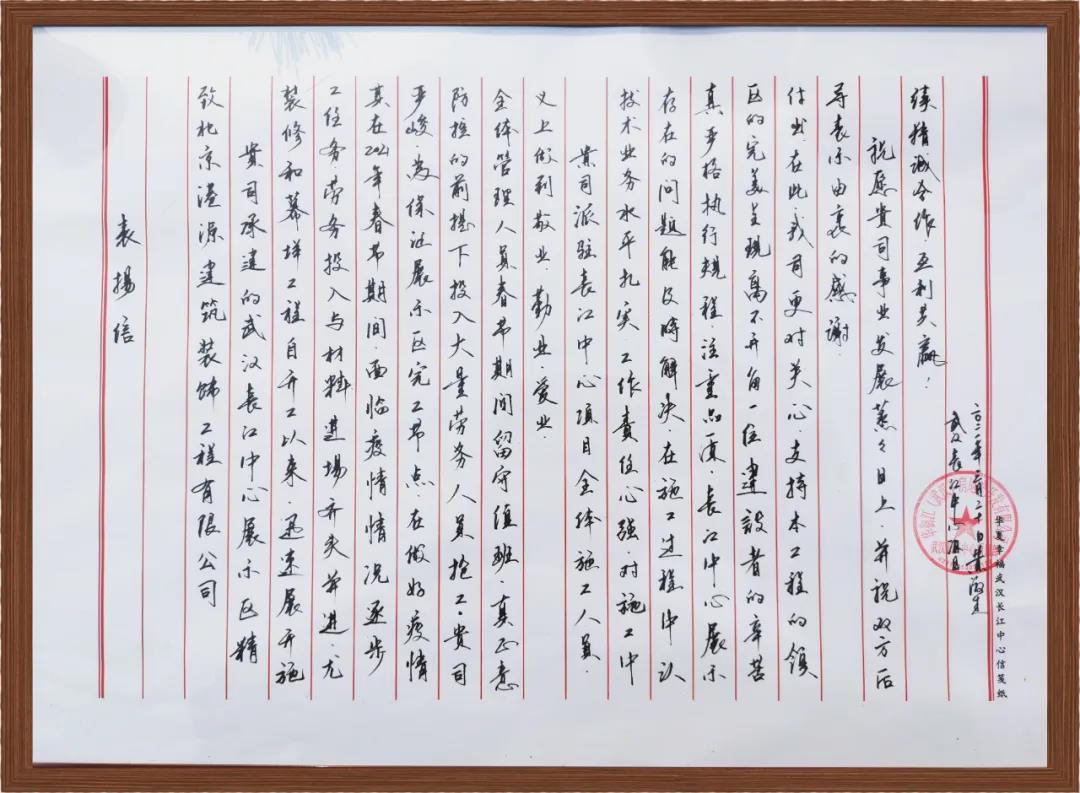 表揚信
致北京港源建筑装饰工程有限公司
貴司承建的武汉長江中心展示区精
装修和幕墙工程自开工以来.迅速展开施
工任务劳务投入与材料進場齐头并進.尤
其在2021年春节期间.面临疫情情况逐步
严峻.为保证展示区完工节点.在做好疫情
防控的前提下投入大量劳务人員抢工.贵司
全体管理人員春节期间留守值班.真正意
义上做到敬业.勤业.爱业.
貴司派驻長江中心项目全体施工人員.
技术业务水平扎实.工作責任心强.对施工中
存在的问题能及時解决.在施工过程中认
真严格执行規程.注重品质.長江中心展示
区的完美呈現离不开每一位建設者的辛苦
付出.在此我司更对关心.支持本工程的领
导表示由衷的感谢.
祝愿贵司事业发展蒸々日上.并祝双方后
续精诚合作互利共赢!
武汉長江中心项目
二〇二一年三月二十日
华夏幸福武汉长江中心信笺纸